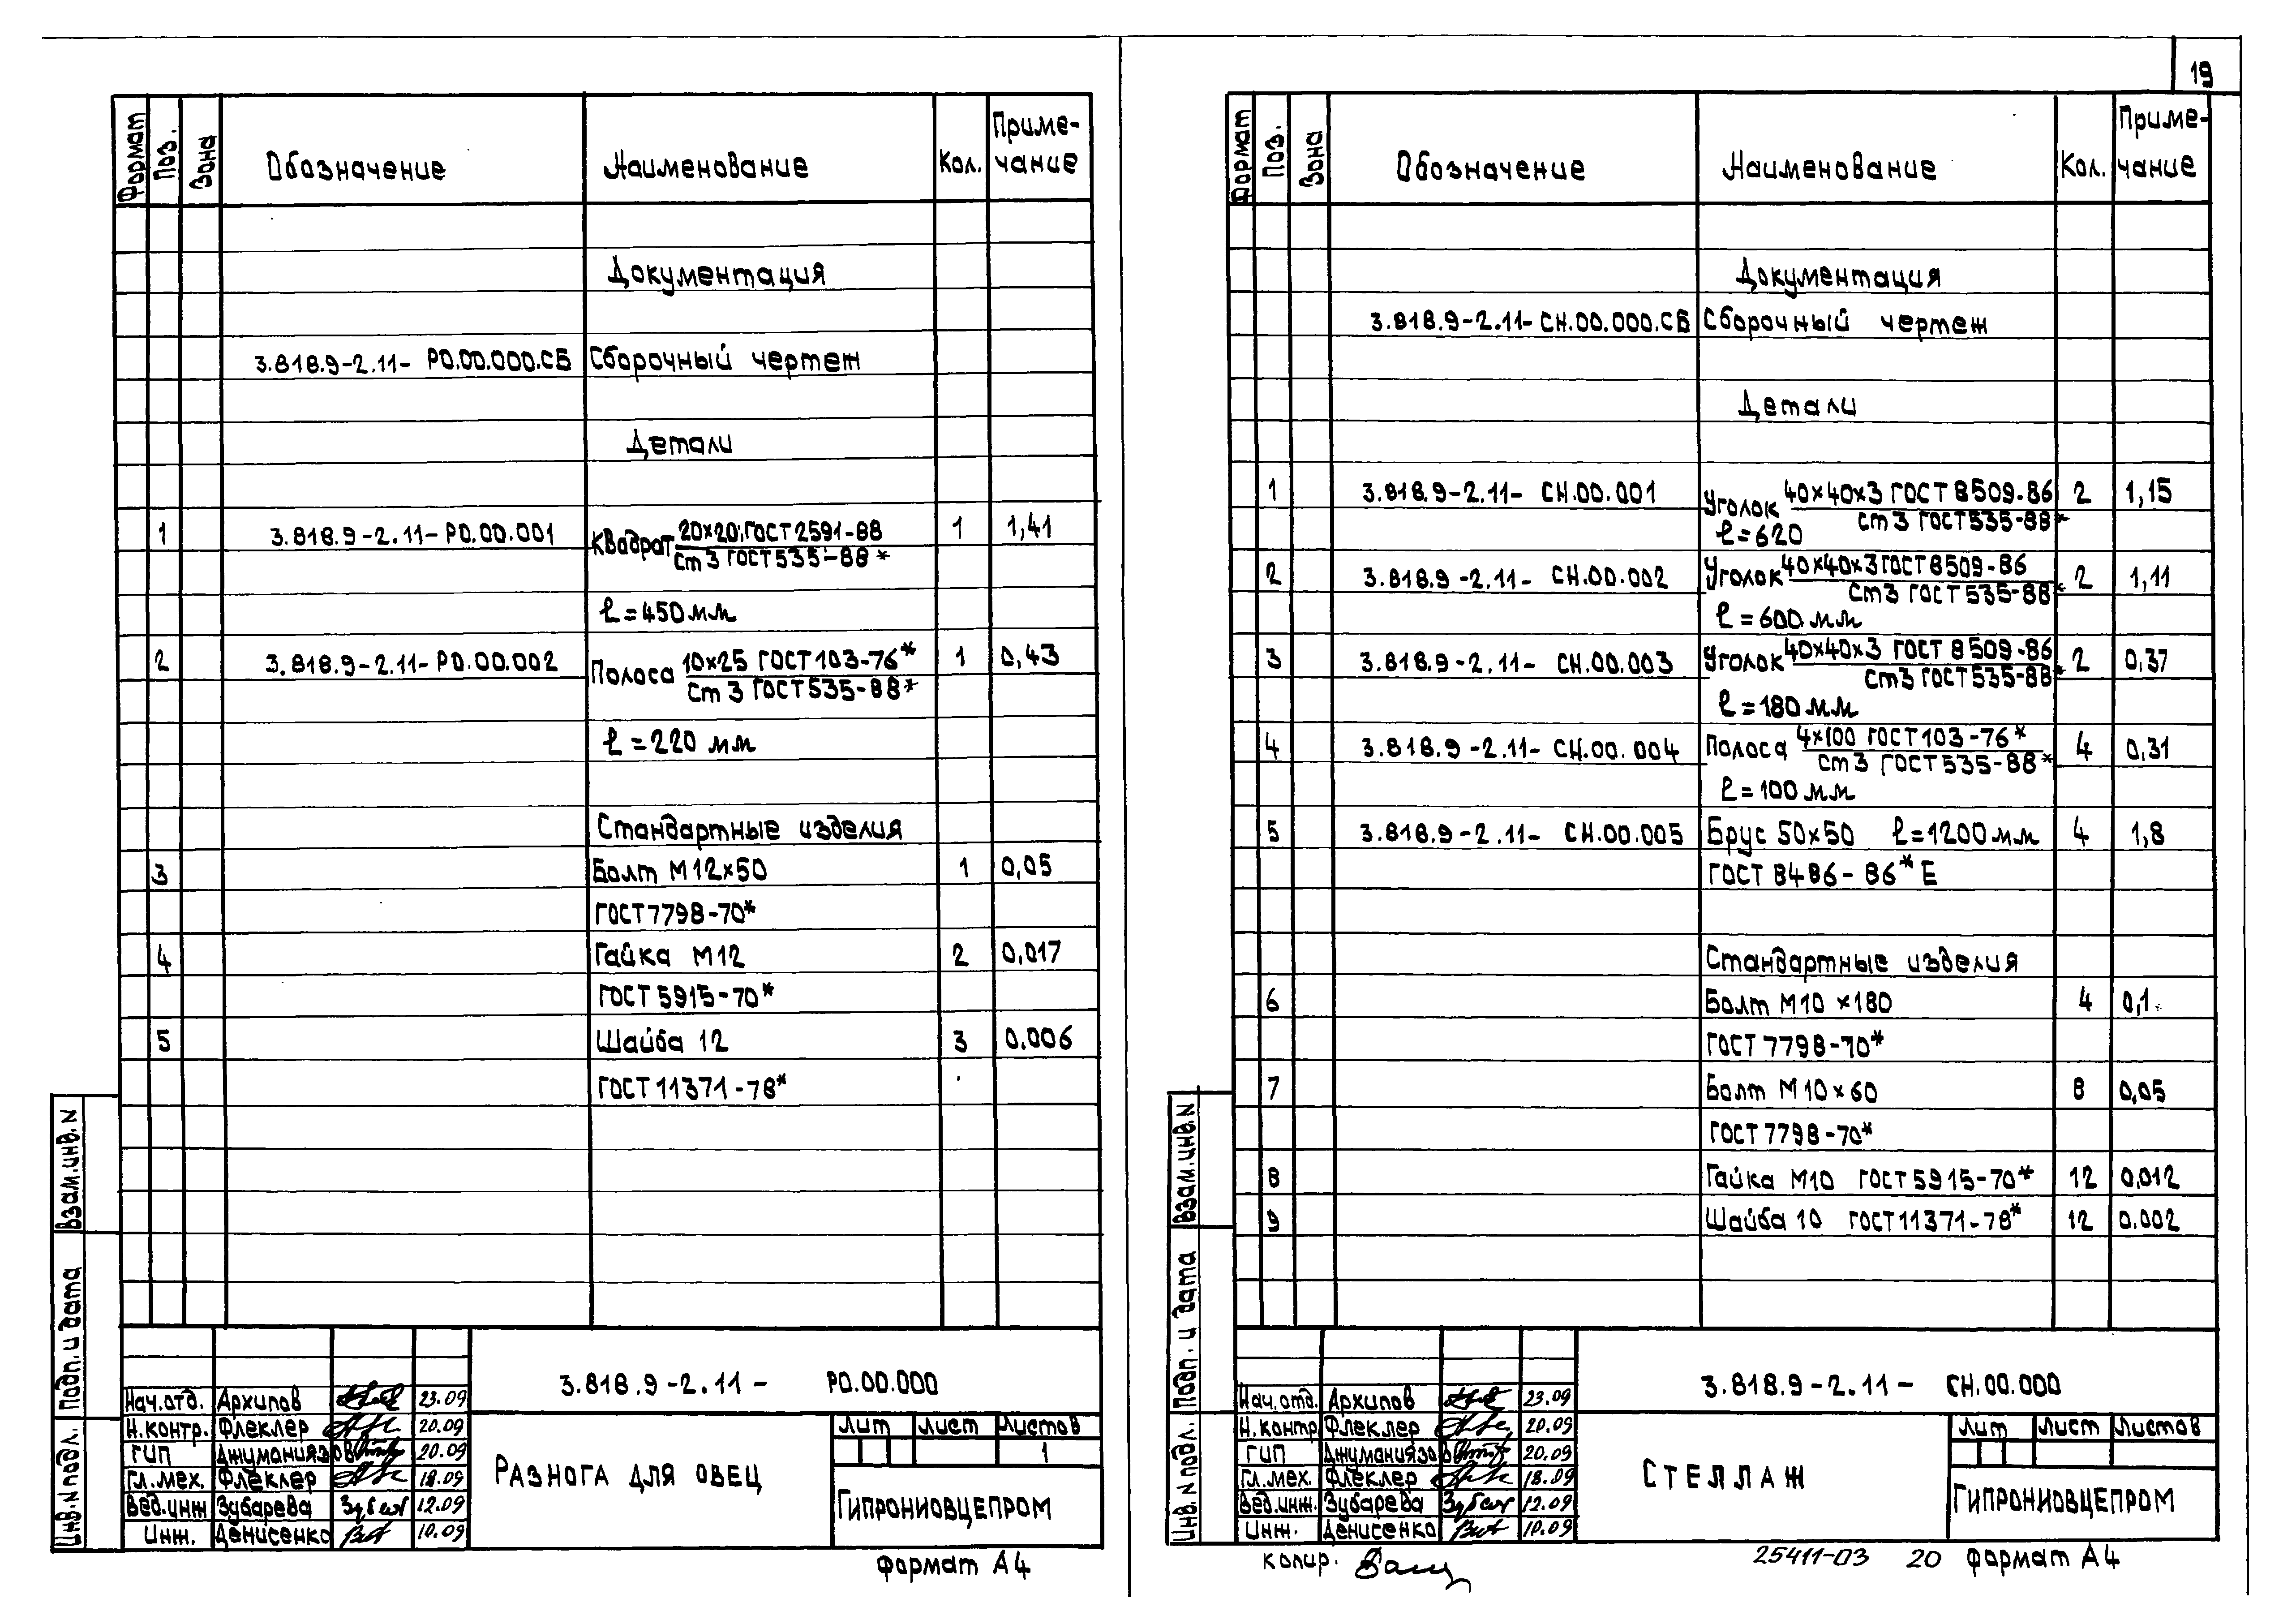 19
Формат Поз. Зона Обозначение Наименование Кол. Приме-
чание
Документация
3.818.9-2.11- РО.00.000.СБ Сборочный чертеж
Детали
1 3.818.9-2.11-РО.00.001 Квадрат 20х20 ГОСТ 2591-88 1 1,41
ст 3 ГОСТ 535-88*
ℓ=450 мм
2 3.818.9-2.11-РО.00.002 Полоса 10х25 ГОСТ 103-76* 1 0,43
ст 3 ГОСТ 535-88*
ℓ=220 мм
Стандартные изделия
3 Болт М12х50 1 0,05
ГОСТ 7798-70*
4 Гайка М12 2 0,017
ГОСТ 5915-70*
5 Шайба 12 3 0.006
ГОСТ 11371-78*
Взам.инв.N
Подп. и дата
Инв.N подл.
3.818.9-2.11- РО.00.000
Нач.отд. Архипов 23.09
Н.контр. Флеклер 20.09
ГИП Джуманиязов 20.09
Гл.мех. Флеклер 18.09
Вед.инж Зубарева 12.09
Инж. Денисенко 10.09
РАЗНОГА ДЛЯ ОВЕЦ
Лит Лист Листов
1
ГИПРОНИОВЦЕПРОМ
Формат А4
Формат Поз. Зона Обозначение Наименование Кол. Приме-
чание
Документация
3.818.9-2.11-СН.00.000.СБ Сборочный чертеж
Детали
1 3.818.9-2.11- СН.00.001 Уголок 40х40х3 ГОСТ 8509-86 2 1,15
ст 3 ГОСТ 535-88*
ℓ=620
2 3.818.9-2.11- СН.00.002 Уголок 40х40х3 ГОСТ 8509-86 2 1,11
ст 3 ГОСТ 535-88*
ℓ=600 мм
3 3.818.9-2.11- СН.00.003 Уголок 40х40х3 ГОСТ 8509-86 2 0,37
ст 3 ГОСТ 535-88*
ℓ=180 мм
4 3.818.9-2.11- СН.00.004 Полоса 4х100 ГОСТ 103-76* 4 0,31
ст 3 ГОСТ 535-88*
ℓ=100 мм
5 3.818.9-2.11- СН.00.005 Брус 50х50 ℓ=1200 мм 4 1,8
ГОСТ 8486-86* Е
Стандартные изделия
6 Болт М10 х180 4 0,1
ГОСТ 7798-70*
7 Болт М10х60 8 0,05
ГОСТ 7798-70*
8 Гайка М10 ГОСТ 5915-70* 12 0,012
9 Шайба 10 ГОСТ 11371-78* 12 0.002
Взам.инв.N
Подп. и дата
Инв.N подл.
3.818.9-2.11- СН.00.000
Нач.отд. Архипов 23.09
Н.контр Флеклер 20.09
ГИП Джуманиязов 20.09
Гл.мех. Флеклер 18.09
Вед.инж. Зубарева 12.09
Инж. Денисенко 10.09
СТЕЛЛАЖ
Лит Лист Листов
ГИПРОНИОВЦЕПРОМ
копир. 25411-03 20 Формат А4